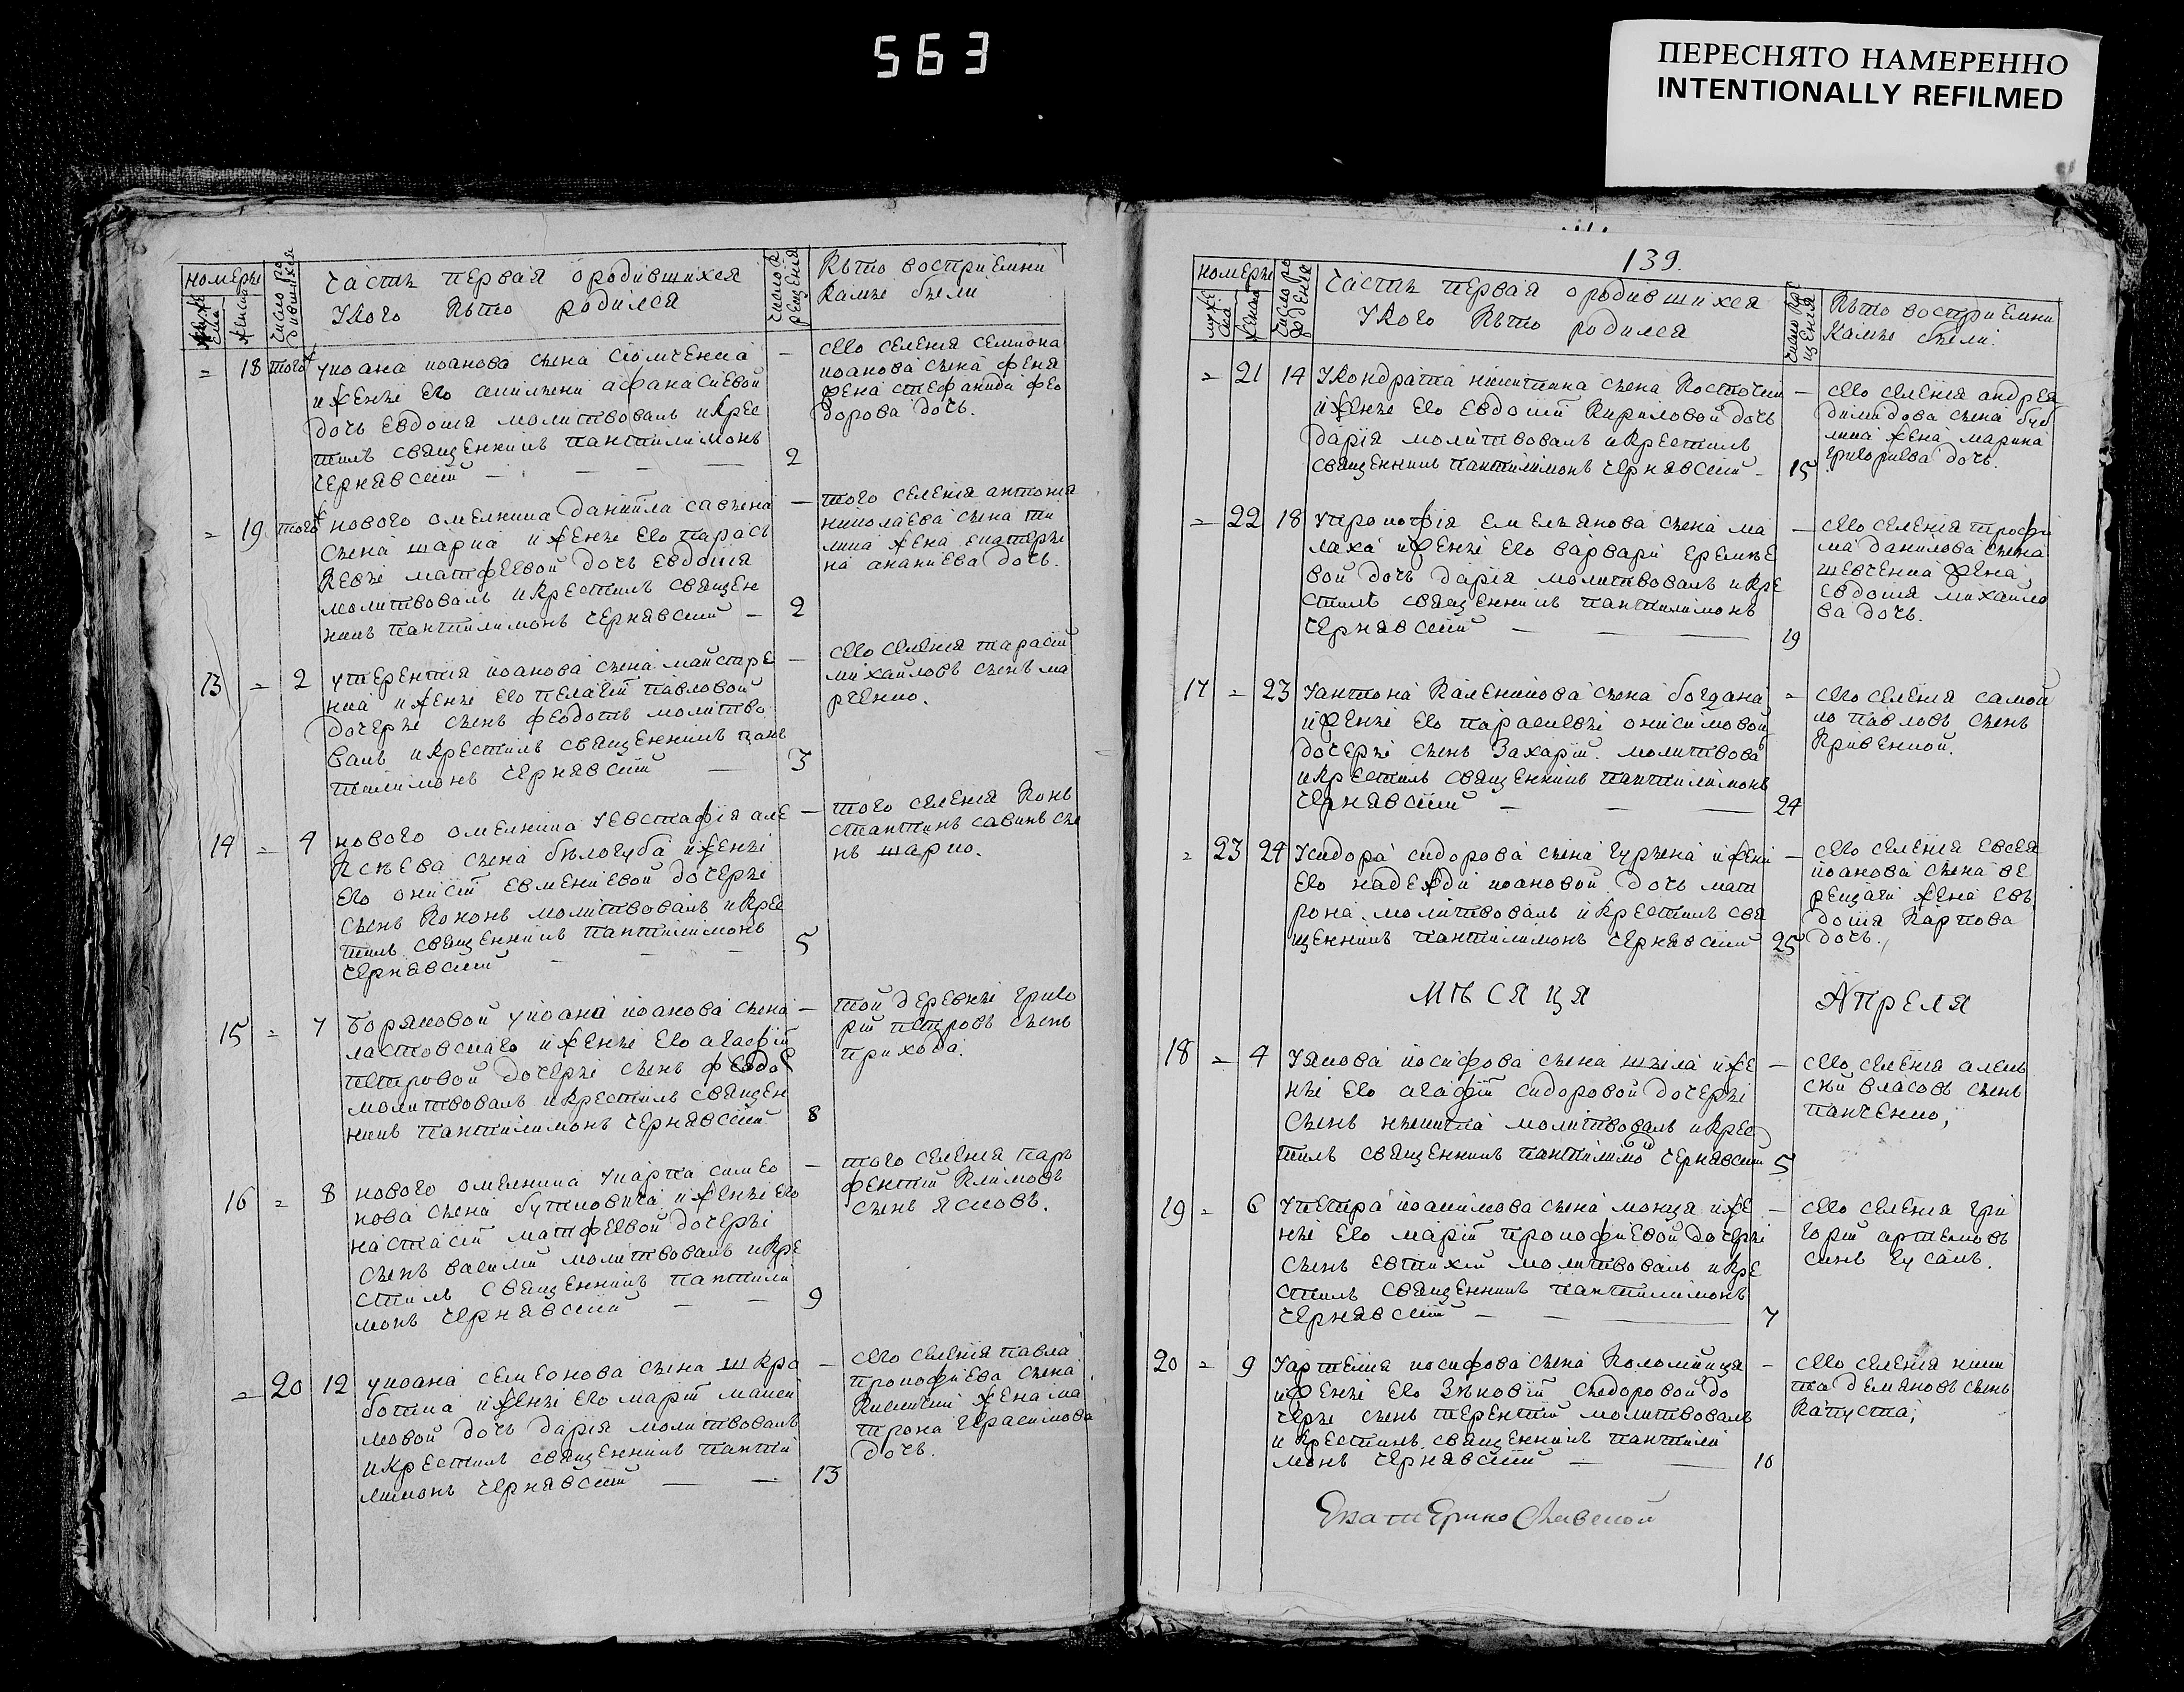 563
ПЕРЕСНЯТО НАМЕРЕННО
INTENTIONALLY REFILMED
номеръ
мужеска
женска
число родившихся
часть первая ородившихся
Укого кьто родился
число крещения
кьто восприемни
камъ были
= 18 того
уиоана иоанова съна
ижени его афанасиевой
дочь евдокия молитвовалъ икрес
тилъ священникъ пантилимонъ
чернявский — 2
— сего селения семиона
иоанова съна
жена стефанида фео
дорова дочь.
= 19 того
нового омелника даниила савъина
съна шарпа иженъ его парас
кевъ матфеевой дочь евдокия
молитвовалъ икрестилъ священ
никъ пантилимонъ чернявский — 2
— того селения антона
николаева съна
жена екатеръ
на ананиева дочь.
13 = 2
утерентия иоанова съна майстре
нка иженъ его пелагии павловой
дочеръ сънъ феодотъ молитво
валъ икрестилъ священникъ пань
тилимонъ чернявский — 3
— сего селения тарасий
михайловъ сънъ ма
рченко.
14 = 4
нового омелника Уевстафия але
ксъева съна бълогуба иженъ
его онисии евмениевой дочеръ
сънъ кононъ молитвовалъ икрес
тилъ священникъ пантилимонъ
чернявский — 5
— того селения конь
стантинъ савинъ съ
нъ шарпо.
15 = 7
Боряковой уиоана иоанова съна
ластовскаго иженъ его агафии
петровой дочеръ сънъ феодос
молитвовалъ икрестилъ священ
никъ пантилимонъ чернявский 8
— той деревнъ григо
рий петровъ сънъ
прихода.
16 = 8
нового омелника Укарпа симео
нова съна бутковича иженъ его
настасии матфеевой дочеръ
сънъ василий молитвовалъ икре
стилъ священникъ пантили
монъ чернявский — 9
— того селения пар
фентий климовъ
сънъ ясковъ.
= 20 12
уиоана семеонова съна шкро
ботка иженъ его марии макси
мовой дочь дария молитвовалъ
икрестилъ священникъ панти
лимонъ чернявский — 13
— сего селения павла
прокофиева съна
жена ма
трона герасимова
дочь.
139.
номеръ
мужеска
женска
число рождения
Часть первая ородившихся
Укого кьто родился
число крещения
кьто восприемни
камъ были.
= 21 14
Укондрата никитина съна
иженъ его евдокии кириловой дочь
дария молитвовалъ икрестилъ
священникъ пантилимонъ чернявский — 15
— сего селения андрея
димидова съна
жена марина
григориева дочь.
= 22 18
Упрокофия емельянова съна ма
лаха иженъ его варвари еремъе
вой дочь дария молитвовалъ икре
стилъ священникъ пантилимонъ
чернявский — 19
— сего селения трофи
ма данилова съна
шевченка жена
евдокия михайло
ва дочь.
17 = 23
Уантона каленикова съна богдана
иженъ его параскевъ онисимовой
дочеръ сънъ Захарий. молитвова
икрестилъ священникъ пантилимонъ
чернявский — 24
= сего селения самой
ло павловъ сънъ
кривенкой.
= 23 24
Усидора сидорова съна гуръна ижени
его надежди иоановой дочь мат
рона. молитвовалъ икрестилъ свя
щенникъ пантилимонъ чернявский 25
— сего селения евсея
иоанова съна ве
рещаги жена евъ
докия карпова
дочь.
мъсяца
Апреля
18 = 4
Уякова иосифова съна шъла иже
нъ его агафии сидоровой дочеръ
сънъ никита молитвовалъ икрес
тилъ священникъ пантилимо чернявский 5
— сего селения алек
сий власовъ сънъ
панченко;
19 = 6
Упетра иоакимова съна моица иже
нъ его марии прокофиевой дочеръ
сънъ евтихий молитвовалъ икре
стилъ священникъ пантилимонъ
чернявский — 7
— сего селения гри
горий артемовъ
синъ гусакъ.
20 = 9
Уартемия иосифова съна коломийца
иженъ его Зъновии съдоровой до
черъ сънъ терентий молитвовалъ
икрестилъ священникъ пантили
монъ чернявский — 10
— сего селения ники
та демяновъ сънъ
капуста;
Екатеринославской